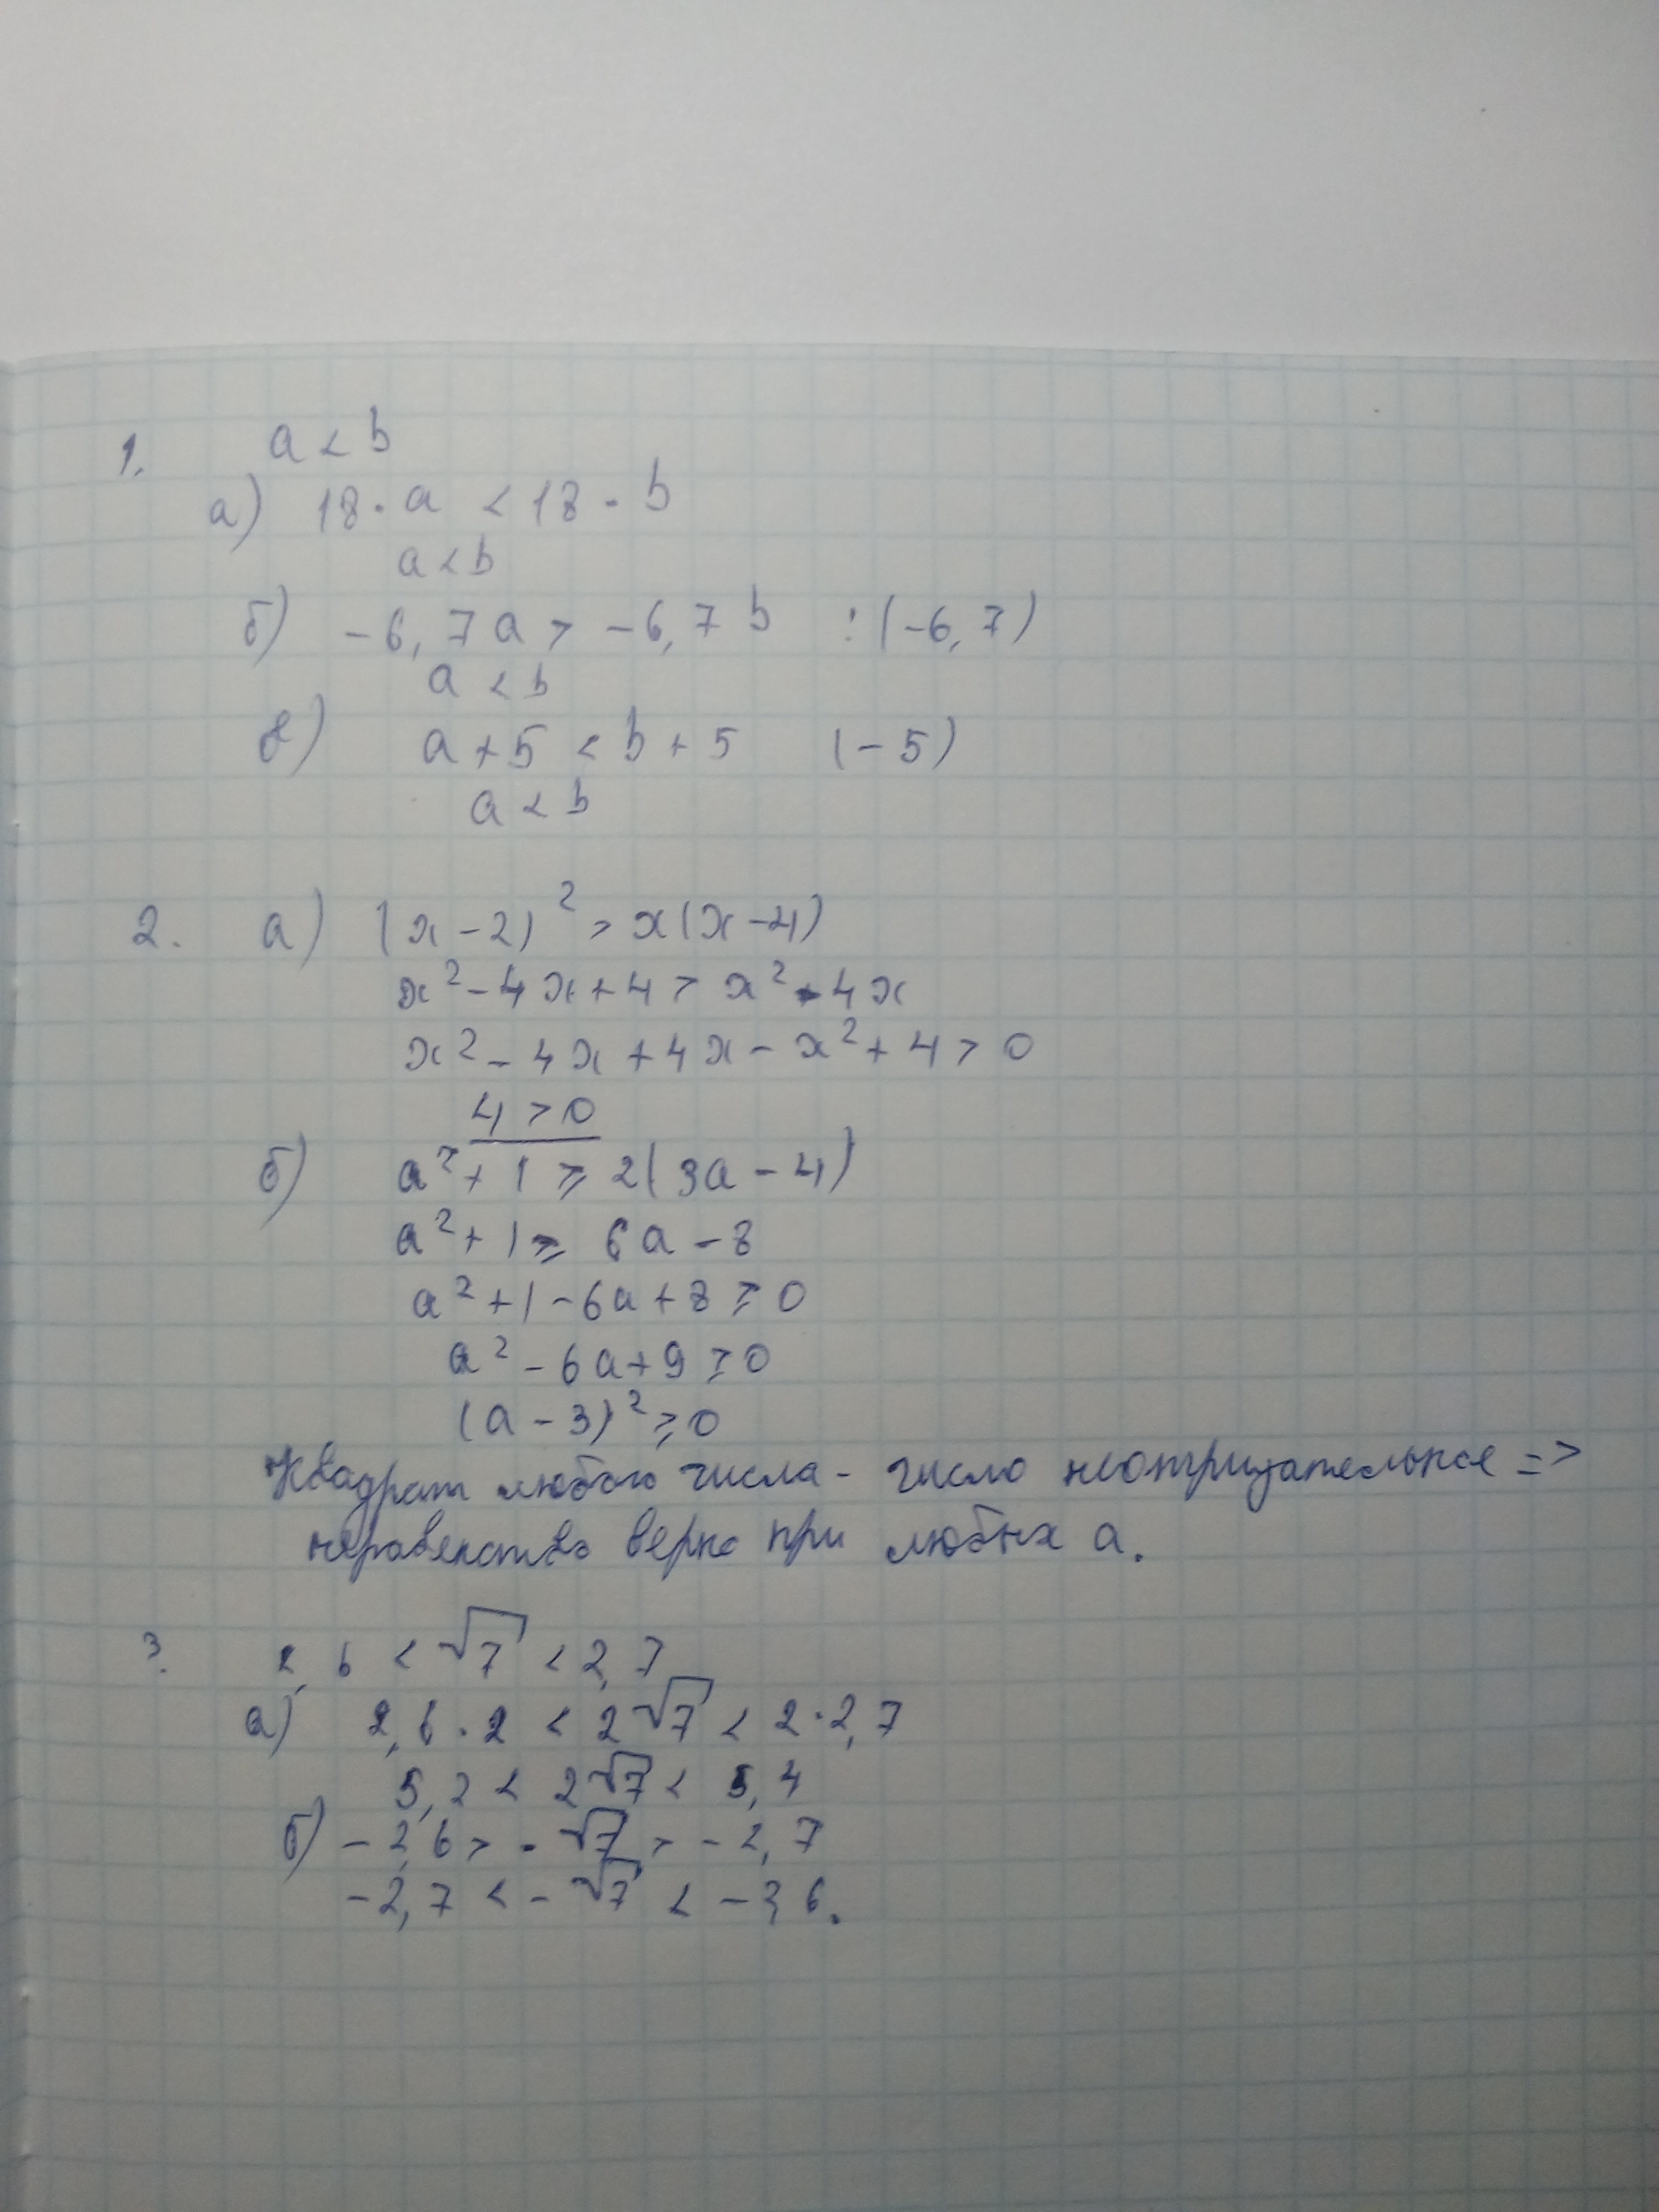 1. a < b
а) 18 · a < 18 · b
a < b
б) -6,7a > -6,7b :(-6,7)
a < b
в) a + 5 < b + 5 (-5)
a < b
2. а) (x - 2)² > x(x - 4)
x² - 4x + 4 > x² - 4x
x² - 4x + 4x - x² + 4 > 0
4 > 0
б) a² + 1 ≥ 2(3a - 4)
a² + 1 ≥ 6a - 8
a² + 1 - 6a + 8 ≥ 0
a² - 6a + 9 ≥ 0
(a - 3)² ≥ 0
Квадрат любого числа - число неотрицательное =>
неравенство верно при любых a.
3. 2,6 < √7 < 2,7
а) 2,6 · 2 < 2√7 < 2 · 2,7
5,2 < 2√7 < 5,4
б) -2,6 > -√7 > -2,7
-2,7 < -√7 < -2,6.